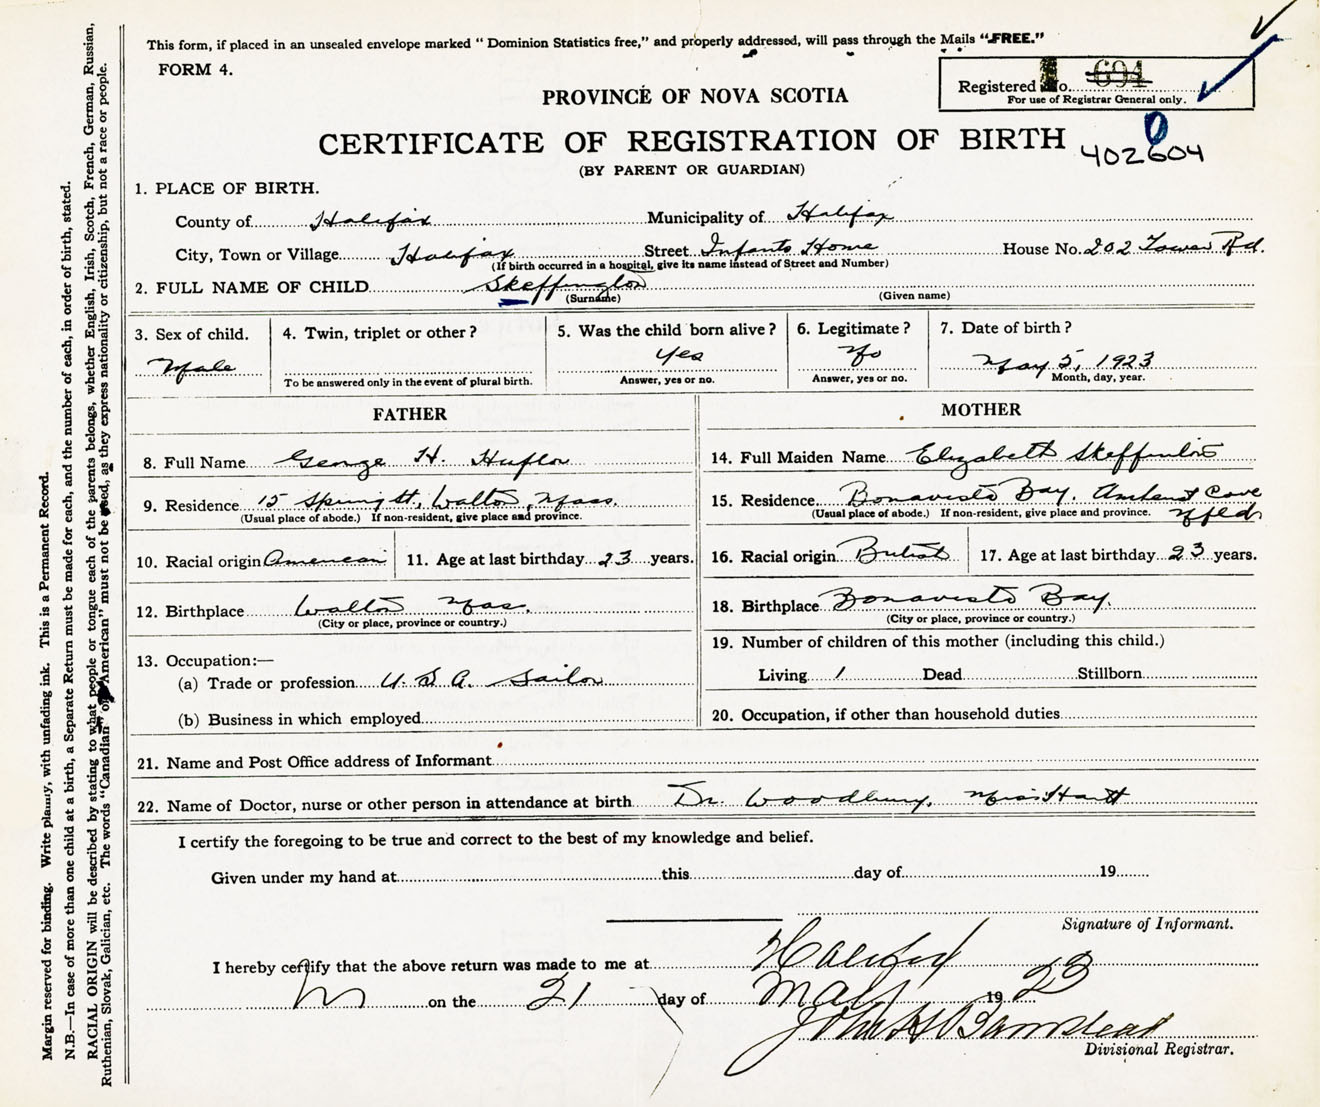 This form, if placed in an unsealed envelope marked " Dominion Statistics free," and properly addressed, will pass through the Mails "FREE."
FORM 4.
Registered No. 694
For use of Registrar General only.
PROVINCE OF NOVA SCOTIA
CERTIFICATE OF REGISTRATION OF BIRTH
402604
0
(BY PARENT OR GUARDIAN)
1. PLACE OF BIRTH.
County of Halifax Municipality of Halifax
City, Town or Village Halifax Street Infants Home House No. 202 Tower Rd.
(If birth occurred in a hospital, give its name instead of Street and Number)
2. FULL NAME OF CHILD Skeffington
(Surname) (Given name)
3. Sex of child. 4. Twin, triplet or other? 5. Was the child born alive? 6. Legitimate? 7. Date of birth?
Male Yes No May 5, 1923
To be answered only in the event of plural birth. Answer, yes or no. Answer, yes or no. Month, day, year.
FATHER MOTHER
8. Full Name George H. 14. Full Maiden Name Elizabeth
9. Residence 15 Spring St, Walton, Mass. 15. Residence Bonavista Bay. Amherst Cove
(Usual place of abode.) If non-resident, give place and province. (Usual place of abode.) If non-resident, give place and province. Nfld
10. Racial origin American 11. Age at last birthday 23 years. 16. Racial origin British 17. Age at last birthday 23 years.
12. Birthplace Walton Mas. 18. Birthplace Bonavista Bay.
(City or place, province or country.) (City or place, province or country.)
19. Number of children of this mother (including this child.)
13. Occupation:—
(a) Trade or profession U.S.A. Sailor Living 1 Dead Stillborn
(b) Business in which employed 20. Occupation, if other than household duties
21. Name and Post Office address of Informant
22. Name of Doctor, nurse or other person in attendance at birth Dr. Woodbury, Miss Hartt
I certify the foregoing to be true and correct to the best of my knowledge and belief.
Given under my hand at this day of 19
Signature of Informant.
I hereby certify that the above return was made to me at Halifax
on the 21 day of May 1923
John H Barnstead
Divisional Registrar.
Margin reserved for binding. Write plainly, with unfading ink. This is a Permanent Record.
N.B.—In case of more than one child at a birth, a Separate Return must be made for each, and the number of each, in order of birth, stated.
RACIAL ORIGIN will be described by stating to what people or tongue each of the parents belongs, whether English, Irish, Scotch, French, German, Russian,
Ruthenian, Slovak, Galician, etc. The words "Canadian" or "American" must not be used, as they express nationality or citizenship, but not a race or people.